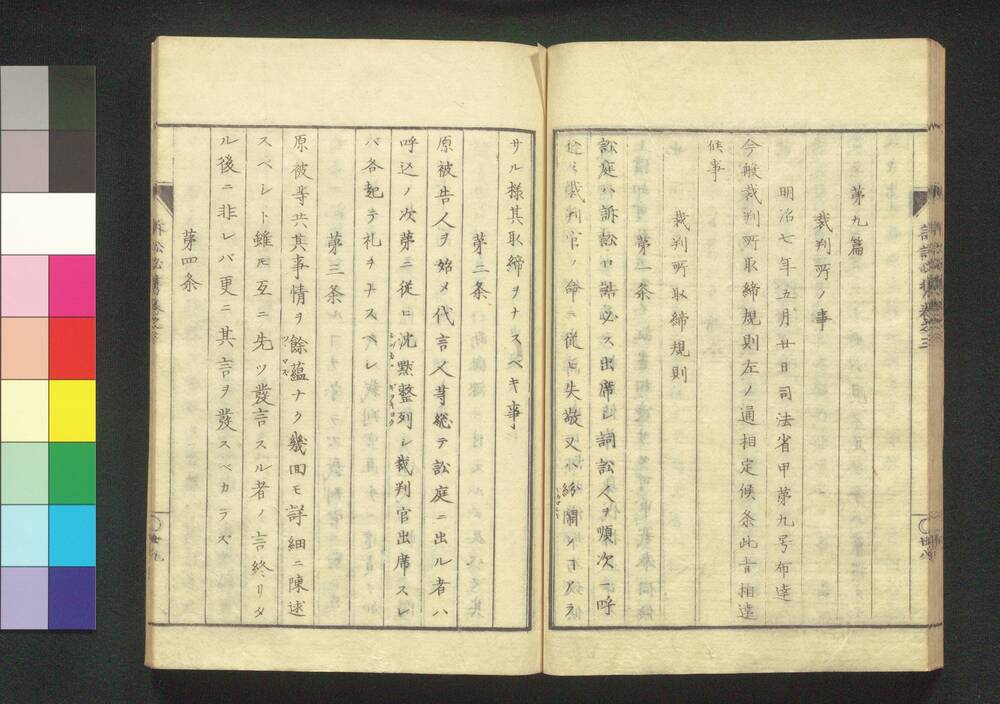 第九篇
裁判所ノ事
明治七年五月廿日司法省甲第九号布達
今般裁判所取締規則左ノ通相定候条此旨相達
候事
裁判所取締規則
第一条
訟庭ハ訴訟ロ詰必ス出席シ詞訟人ヲ順次ニ呼
込ミ裁判官ノ命ニ従ヒ失敬又ハ紛閙ノヿアラ
サル様其取締ヲナスベキ事
第二条
原被告人ヲ始メ代言人等総テ訟庭ニ出ル者ハ
呼込ノ次第ニ従ヒ沈黙整列シ裁判官出席スレ
バ各起テ礼ヲナスベシ
第三条
原被等共其事情ヲ餘蘊ナク幾回モ詳細ニ陳述
スベシト雖モ互ニ先ツ發言スル者ノ言終リタ
ル後ニ非レバ更ニ其言ヲ發スベカラズ
第四条
廿八
廿九